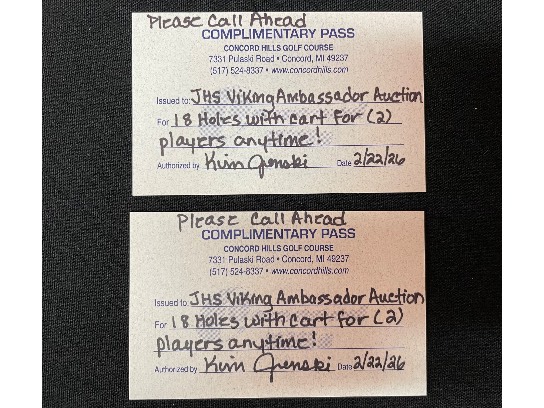 Please Call Ahead
COMPLIMENTARY PASS
CONCORD HILLS GOLF COURSE
7331 Pulaski Road • Concord, MI 49237
(517) 524-8337 • www.concordhills.com
Issued to: JHS Viking Ambassador Auction
For 18 Holes with cart for (2)
players anytime!
Authorized by Kim Date 2/22/26
Please Call Ahead
COMPLIMENTARY PASS
CONCORD HILLS GOLF COURSE
7331 Pulaski Road • Concord, MI 49237
(517) 524-8337 • www.concordhills.com
Issued to: JHS Viking Ambassador Auction
For 18 Holes with cart for (2)
players anytime!
Authorized by Kim Date 2/22/26